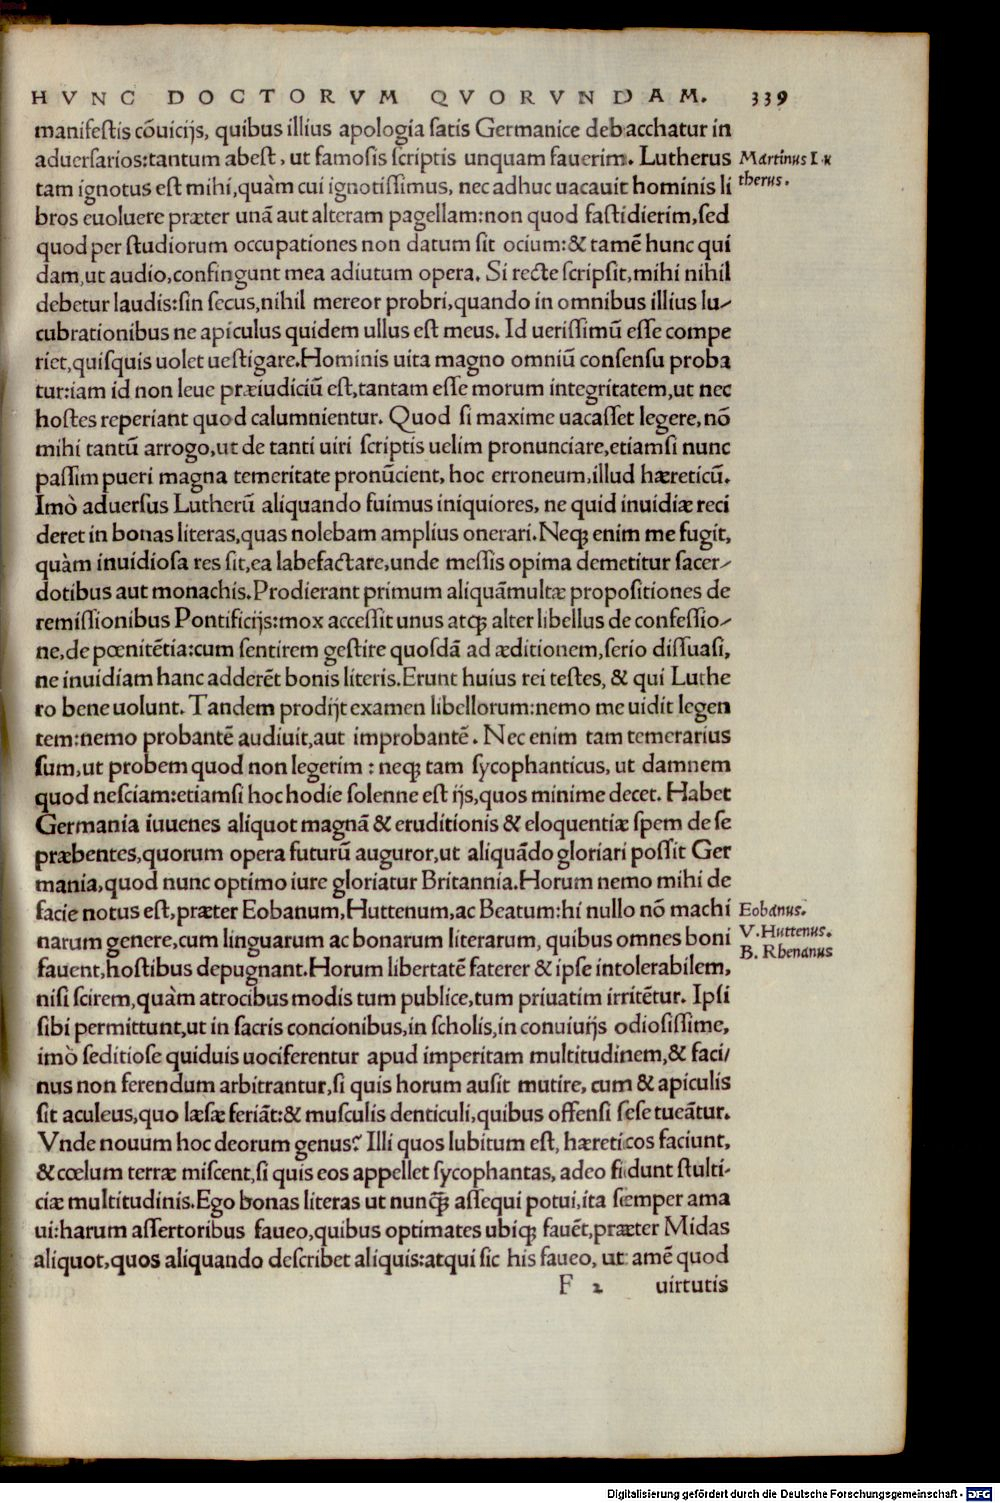 HVNC DOCTORVM QVORVNDAM. 339
manifestis cõuicijs, quibus illius apologia satis Germanice debacchatur in
aduersarios:tantum abest, ut famosis scriptis unquam fauerim. Lutherus
Martinus Lu
tam ignotus est mihi,quàm cui ignotissimus, nec adhuc uacauit hominis li
therus.
bros euoluere præter unã aut alteram pagellam:non quod fastidierim,sed
quod per studiorum occupationes non datum sit ocium:& tamẽ hunc qui
dam,ut audio,confingunt mea adiutum opera. Si recte scripsit,mihi nihil
debetur laudis:sin secus,nihil mereor probri,quando in omnibus illius lu-
cubrationibus ne apiculus quidem ullus est meus. Id uerissimũ esse compe
riet,quisquis uolet uestigare.Hominis uita magno omniũ consensu proba
tur:iam id non leue præiudiciũ est,tantam esse morum integritatem,ut nec
hostes reperiant quod calumnientur. Quod si maxime uacasset legere,nõ
mihi tantũ arrogo,ut de tanti uiri scriptis uelim pronunciare,etiamsi nunc
passim pueri magna temeritate pronũcient, hoc erroneum,illud hæreticũ.
Imò aduersus Lutherũ aliquando fuimus iniquiores, ne quid inuidiæ reci
deret in bonas literas,quas nolebam amplius onerari.Neq; enim me fugit,
quàm inuidiosa res sit,ea labefactare,unde messis opima demetitur sacer-
dotibus aut monachis.Prodierant primum aliquãmultæ propositiones de
remissionibus Pontificijs:mox accessit unus atq; alter libellus de confessio-
ne,de pœnitẽtia:cum sentirem gestire quosdã ad æditionem,serio dissuasi,
ne inuidiam hanc adderẽt bonis literis.Erunt huius rei testes, & qui Luthe
ro bene uolunt. Tandem prodijt examen libellorum:nemo me uidit legen
tem:nemo probantẽ audiuit,aut improbantẽ. Nec enim tam temerarius
sum,ut probem quod non legerim : neq; tam sycophanticus, ut damnem
quod nesciam:etiamsi hoc hodie solenne est ijs,quos minime decet. Habet
Germania iuuenes aliquot magnã & eruditionis & eloquentiæ spem de se
præbentes,quorum opera futurũ auguror,ut aliquãdo gloriari possit Ger
mania,quod nunc optimo iure gloriatur Britannia.Horum nemo mihi de
facie notus est,præter Eobanum,Huttenum,ac Beatum:hi nullo nõ machi
Eobanus.
narum genere,cum linguarum ac bonarum literarum, quibus omnes boni
V.Huttenus.
fauent,hostibus depugnant.Horum libertatẽ faterer & ipse intolerabilem,
B. Rhenanus
nisi scirem,quàm atrocibus modis tum publice,tum priuatim irritẽtur. Ipsi
sibi permittunt,ut in sacris concionibus,in scholis,in conuiuijs odiosissime,
imò seditiose quiduis uociferentur apud imperitam multitudinem,& faci-
nus non ferendum arbitrantur,si quis horum ausit mutire, cum & apiculis
sit aculeus,quo læsæ feriãt:& musculis denticuli,quibus offensi sese tueãtur.
Vnde nouum hoc deorum genus? Illi quos lubitum est, hæreticos faciunt,
& cœlum terræ miscent,si quis eos appellet sycophantas, adeo fidunt stulti-
ciæ multitudinis.Ego bonas literas ut nunq̃ assequi potui,ita semper ama
ui:harum assertoribus faueo,quibus optimates ubiq; fauẽt,præter Midas
aliquot,quos aliquando describet aliquis:atqui sic his faueo, ut amẽ quod
F 2 uirtutis
Digitalisierung gefördert durch die Deutsche Forschungsgemeinschaft - DFG